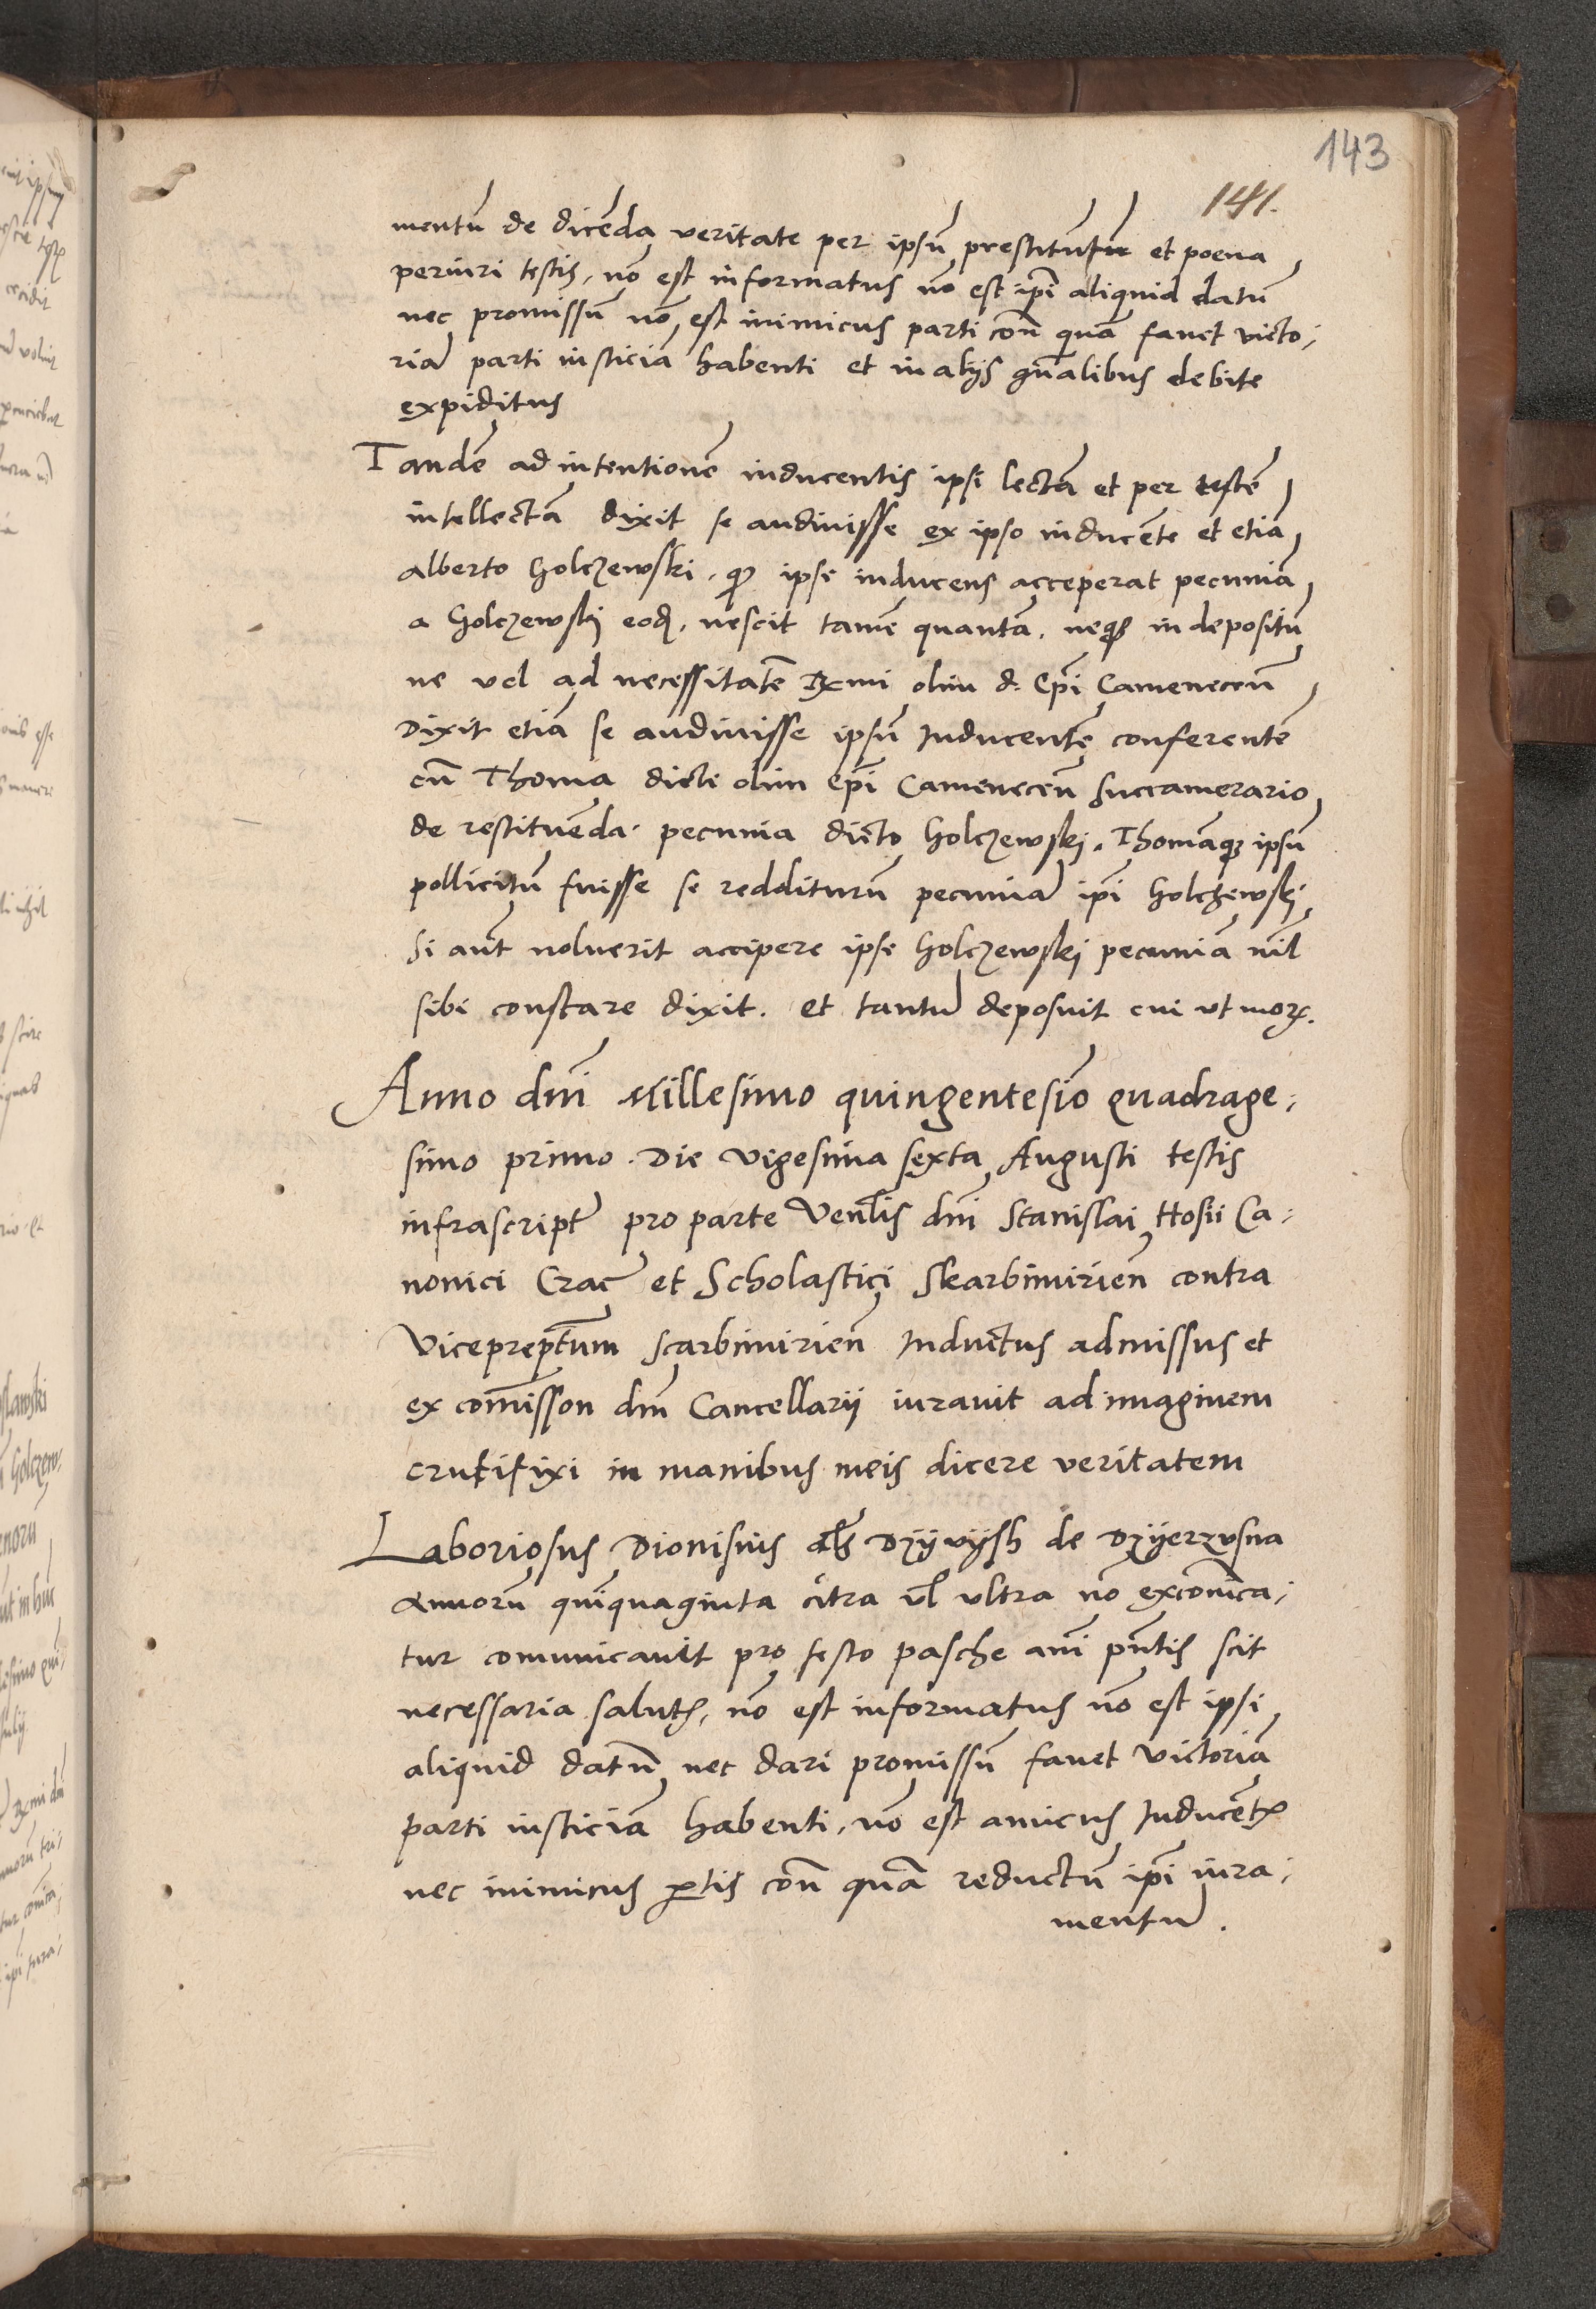 143
141.
mentū de dicēda veritate per ipsū prestitutū et poena
periuri testis, nō est informatus nō est ip̄i aliquid datū
nec promissū nō est inimicus parti con̄ quā fauet victo:
riā parti iusticiā habenti et in alijs gn̄alibus debite
expiditus
Tandē ad intentionē inducentis ipsi lectā et per testē
intellectā dixit se audiuisse ex ipso inducēte et etiā
alberto Golczewski, qꝫ ipse inducens acceperat pecuniā
a Golczewskj eod, nescit tamē quantā, neqꝫ in depositū
ne vel ad necessitatē Rx̄mi olim d. Ep̄i Camenecen̄
Dixit etiā se audiuisse ipsū Inducentē conferentē
cū Thoma dicti olim Ep̄i Camenecen̄ succamerario
de restituēda pecunia dicto Golczewskj. Thomāqꝫ ipsū
pollicitū fuisse se redditurū pecuniā ip̄i Golczewskj
Si aūt noluerit accipere ipse Golczewskj pecuniā nīl
sibi constare dixit. Et tantū deposuit cui ut moꝝ.
Anno dn̄i Millesimo quingentesīo quadrage:
simo primo. Die vigesima sexta Augusti testis
infrascript⁹ pro parte Ven̄lis dn̄i Stanislai Hosii Ca:
nonici Crac̄ et Scholastici Skarbimirien̄ contra
Viceprep̄tum scarbimirien̄ Inductus admissus et
ex com̄isson dn̄i Cancellarii iurauit ad imaginem
crucifixi in manibus meis dicere veritatem
Laboriosus Dionisius als Dzijvijsh de Dzijerzvsna
Annorū quīquaginta citra vl̄ vltra nō excōnica:
tur comunicauit pro festo pasche an̄i pn̄tis scit
necessaria salutꝭ, nō est informatus nō est ipsi
aliquid datū nec dari promissū fauet victoriā
parti iusticiā habenti, nō est amicus Inducētꝭ
nec inimicus ꝑtis con̄ quā reductū ip̄i iura:
mentū.